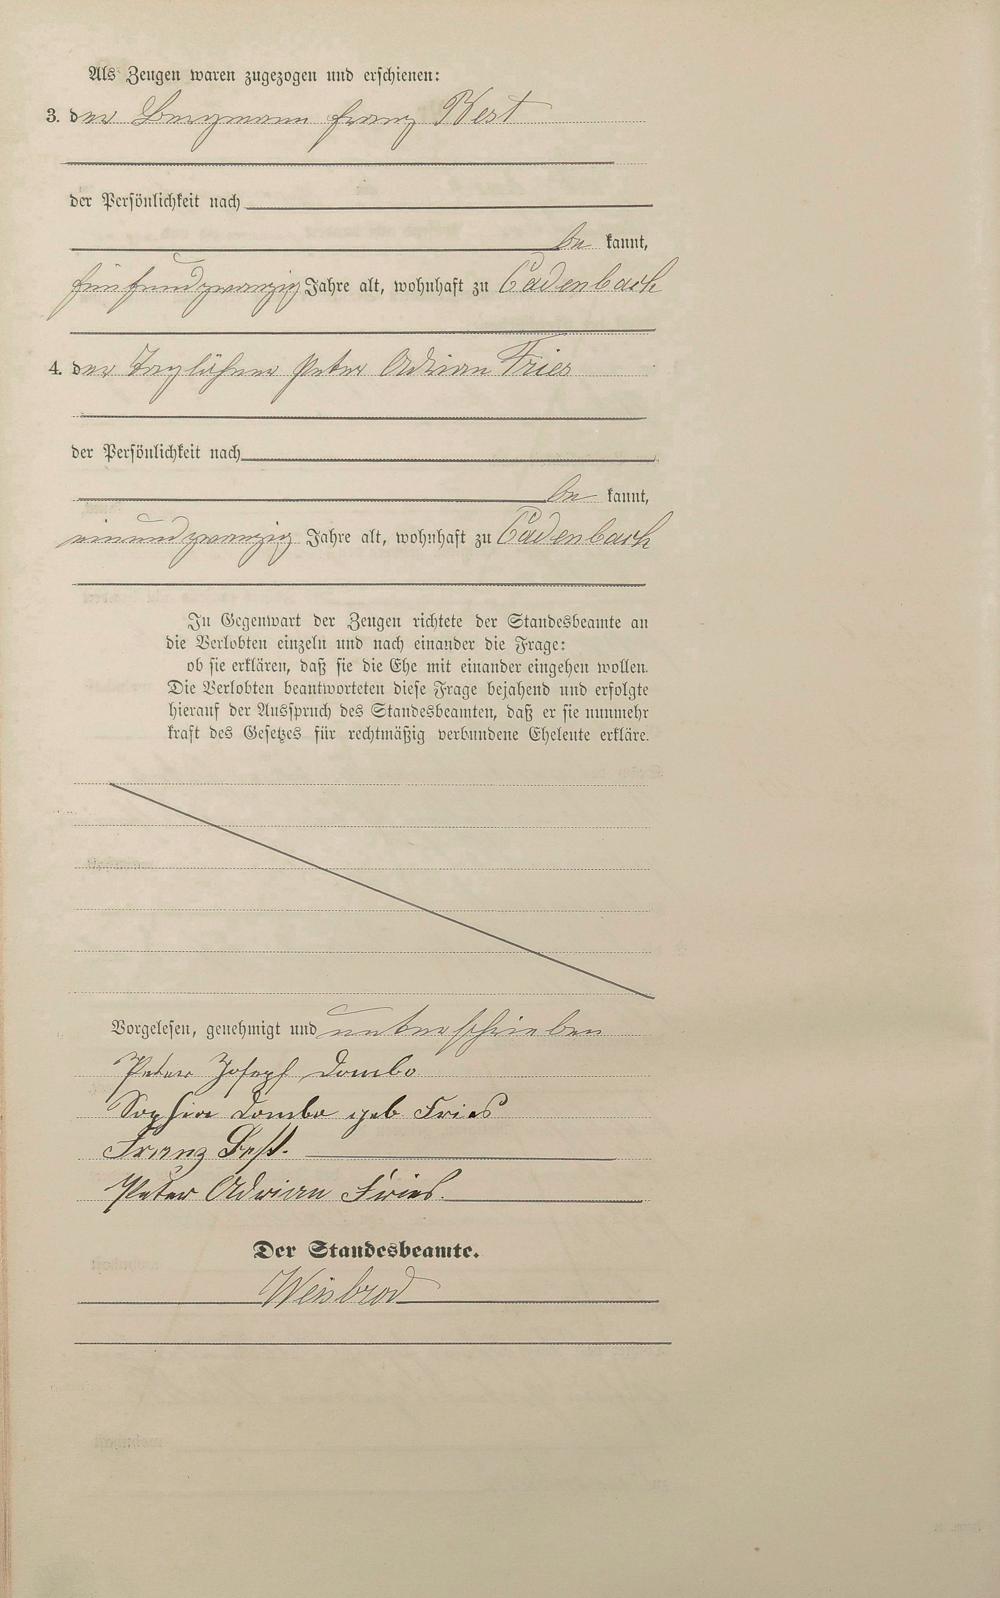 Als Zeugen waren zugezogen und erschienen:
3. der Bergmann Franz Best
der Persönlichkeit nach
be kannt,
fünfundzwanzig Jahre alt, wohnhaft zu Cadenbach
4. der Taglöhner Peter Adrian Fries
der Persönlichkeit nach
be kannt,
einundzwanzig Jahre alt, wohnhaft zu Cadenbach
In Gegenwart der Zeugen richtete der Standesbeamte an
die Verlobten einzeln und nach einander die Frage:
ob sie erklären, daß sie die Ehe mit einander eingehen wollen.
Die Verlobten beantworteten diese Frage bejahend und erfolgte
hierauf der Ausspruch des Standesbeamten, daß er sie nunmehr
kraft des Gesetzes für rechtmäßig verbundene Eheleute erkläre.
Vorgelesen, genehmigt und unterschrieben
Peter Joseph Dombo
Sophia Dombo geb Fries
Franz Best.
Peter Adrian Fries.
Der Standesbeamte.
Weisbrod